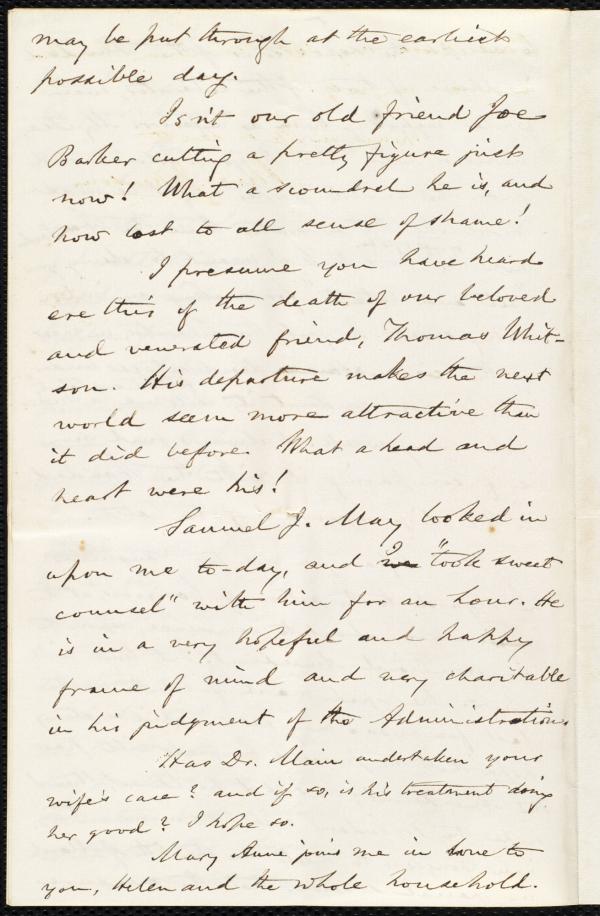 may be put through at the earliest
possible day.
Isn't our old friend Joe
Barker cutting a pretty figure just
now! What a scoundrel he is, and
how lost to all sense of shame!
I presume you have heard
ere this of the death of our beloved
and venerated friend, Thomas Whit-
son. His departure makes the next
world seem more attractive than
it did before. What a head and
heart were his!
Samuel J. May looked in
upon me to-day, and I "took sweet
counsel" with him for an hour. He
is in a very hopeful and happy
frame of mind and very charitable
in his judgment of the Administration.
Has Dr. Main undertaken your
wife's case? and if so, is his treatment doing
her good? I hope so.
Mary Anne joins me in love to
you, Helen and the whole household.